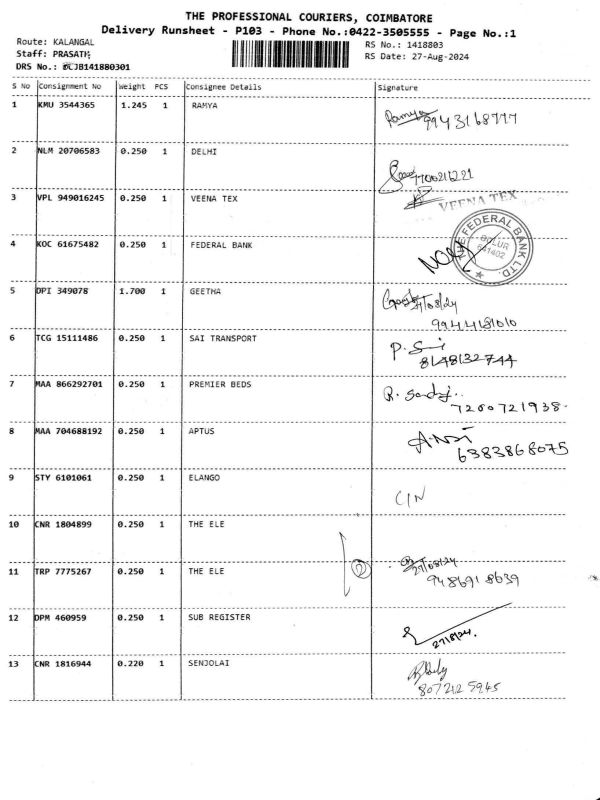 THE PROFESSIONAL COURIERS, COIMBATORE
Delivery Runsheet - P103 - Phone No.:0422-3505555 - Page No.:1
Route: KALANGAL
RS No.: 1418803
Staff: PRASATH
RS Date: 27-Aug-2024
DRS No.: BCJB141880301
S No Consignment No Weight PCS Consignee Details Signature
1 KMU 3544365 1.245 1 RAMYA
Ramya 9943168777
2 NLM 20706583 0.250 1 DELHI
3 VPL 949016245 0.250 1 VEENA TEX
VEENA TEX
4 KOC 61675482 0.250 1 FEDERAL BANK
THE FEDERAL BANK LTD.
641402
5 DPI 349078 1.700 1 GEETHA
27/08/24
6 TCG 15111486 0.250 1 SAI TRANSPORT
P. Sai
8148132744
7 MAA 866292701 0.250 1 PREMIER BEDS
7200721938
8 MAA 704688192 0.250 1 APTUS
6383868075
9 STY 6101061 0.250 1 ELANGO
C/N
10 CNR 1804899 0.250 1 THE ELE
2
11 TRP 7775267 0.250 1 THE ELE
27/08/24
9486918639
12 DPM 460959 0.250 1 SUB REGISTER
27/8/24.
13 CNR 1816944 0.220 1 SENJOLAI